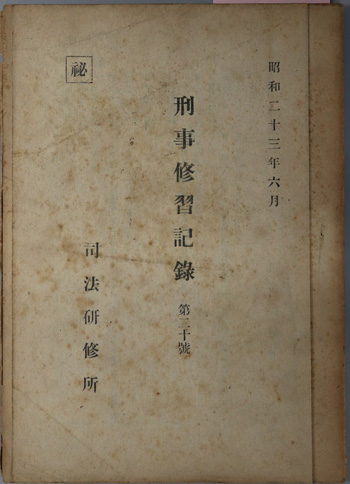 昭和二十三年六月
刑事修習記錄 第二十號
司法研修所
秘